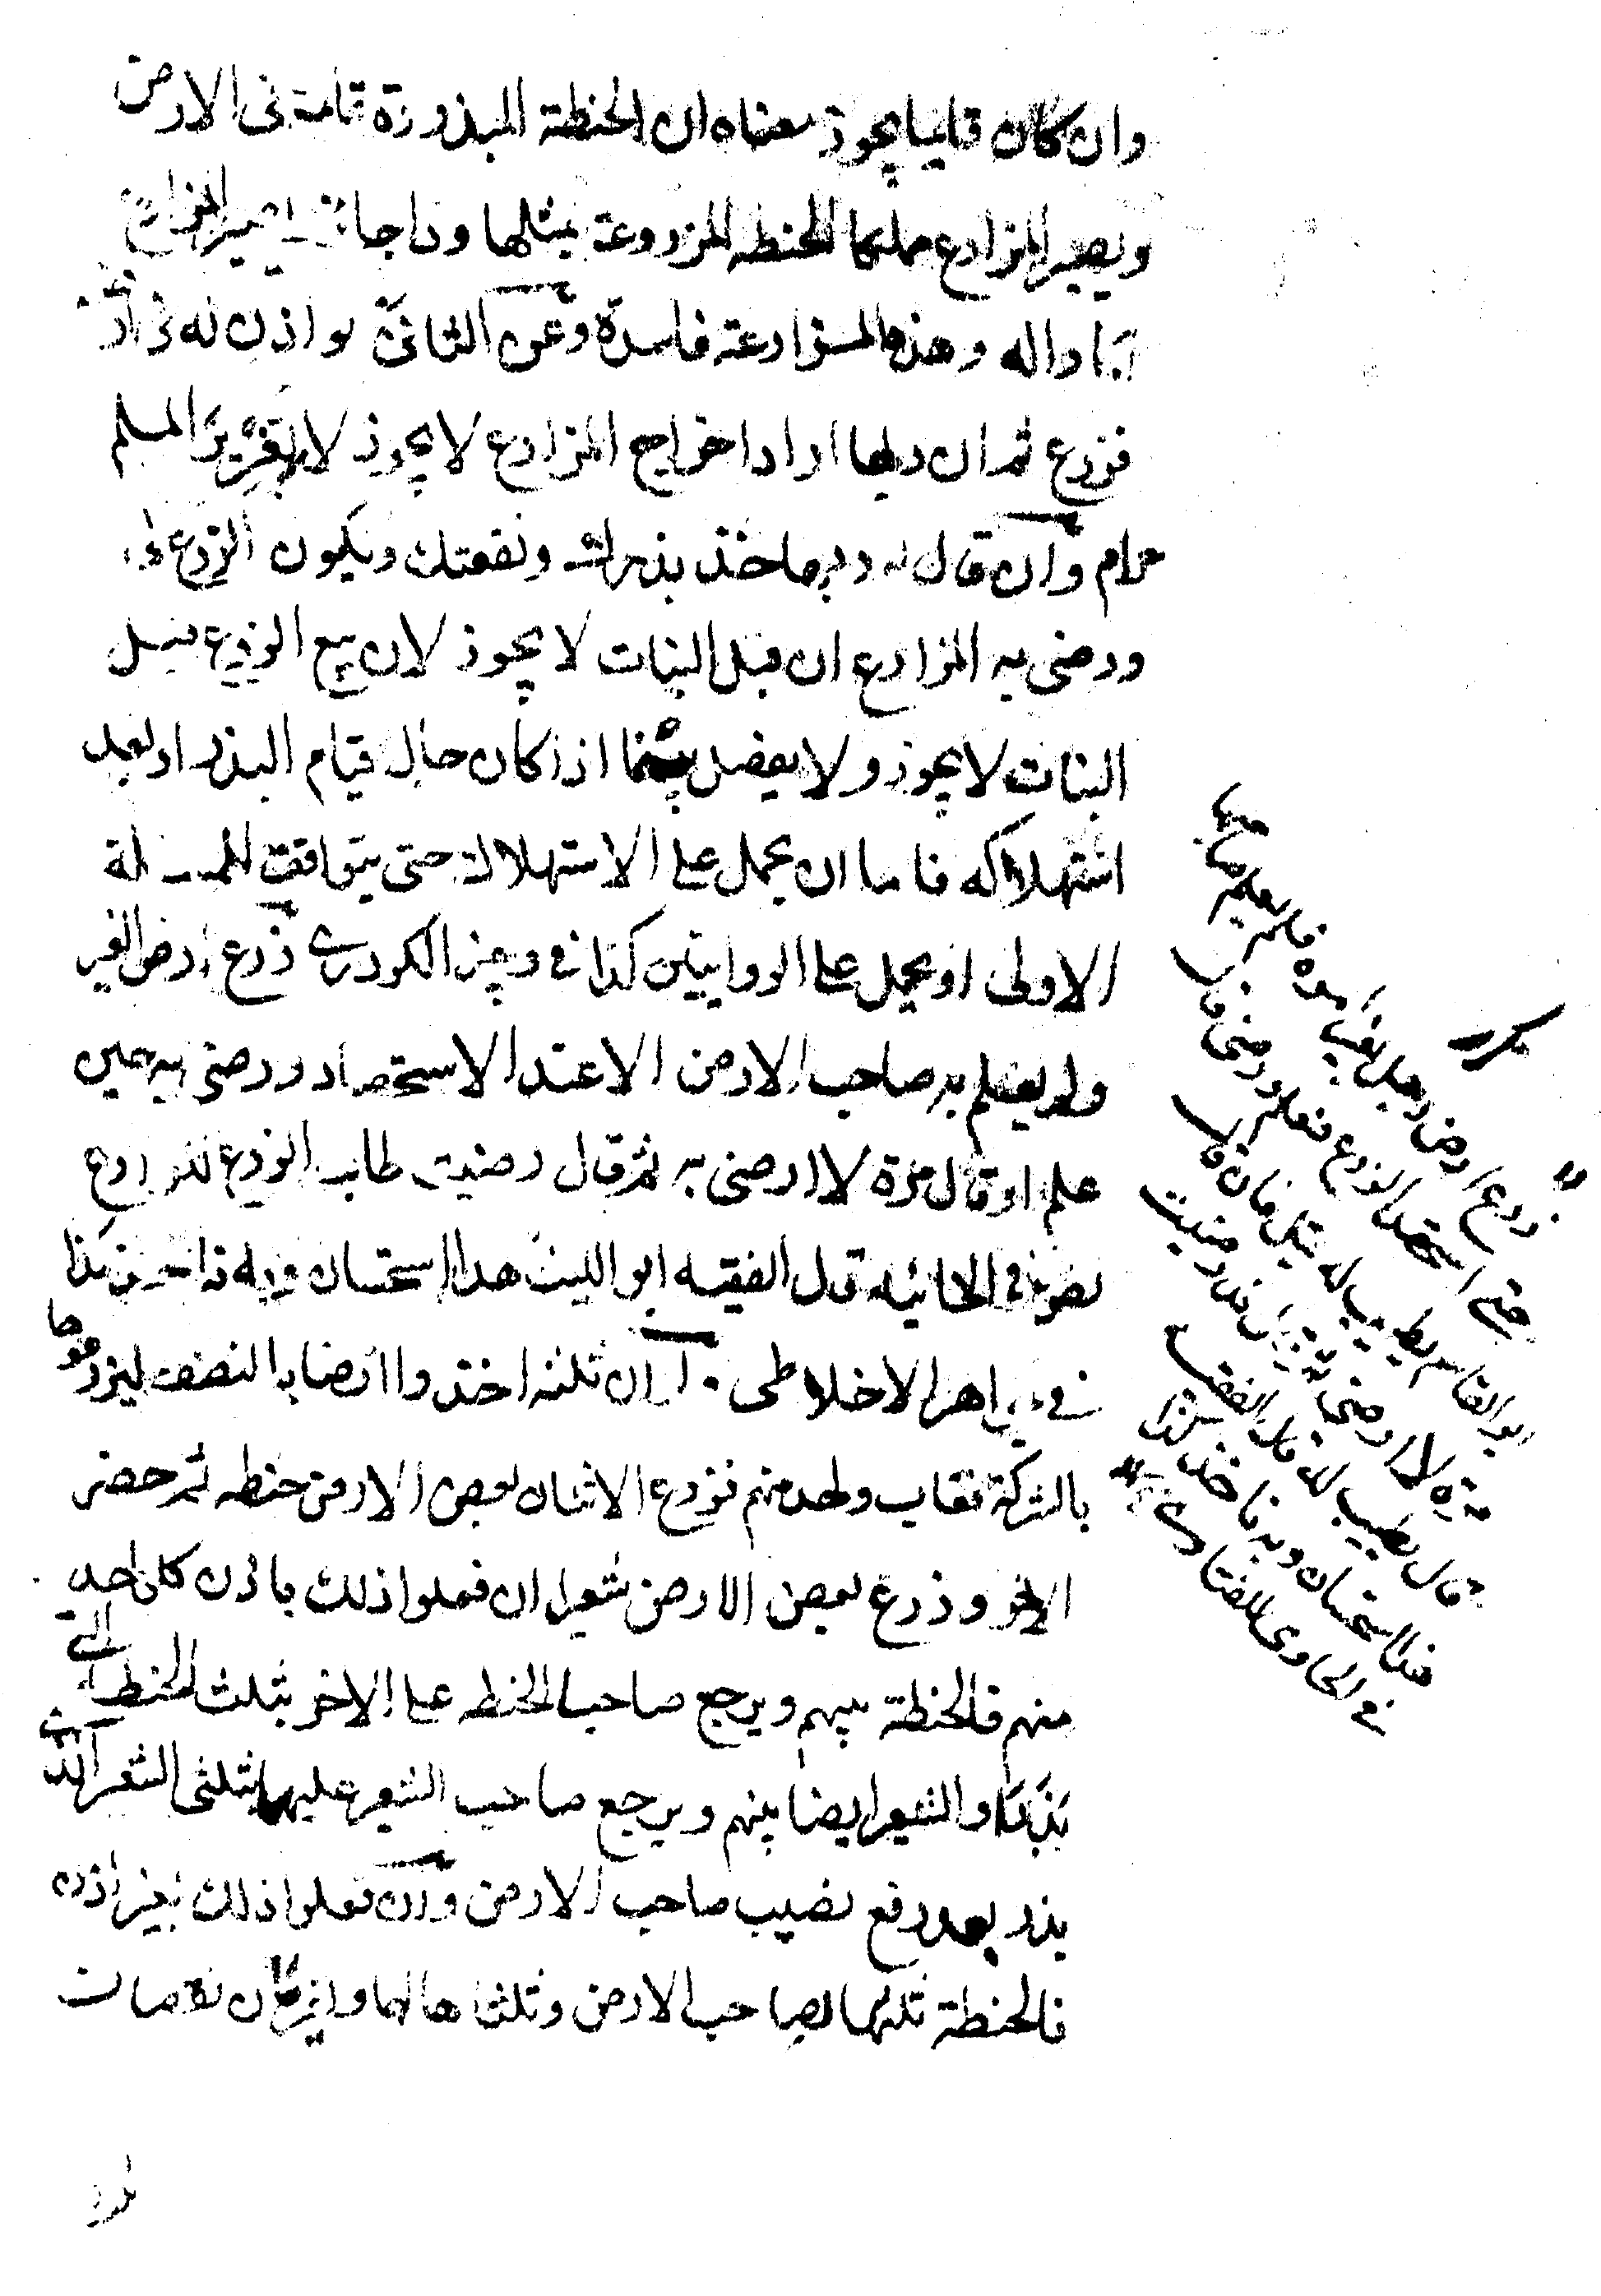 وان كان قايما يجوز معناه ان الحنطة المبذورة قائمة فى الارض
ويصير المزارع مملكا الحنطه المزروعة بمثلها
وهذه المزارعة فاسدة وعن الثانى لو اذن له فى
فزرع ثم ان ربها اراد اخراج المزارع لا يجوز لان تغرير المسلم
حرام وان قال له ربها خذ بذرك ونفقتك ويكون الزرع لى
ورضى به المزارع ان قبل النبات لا يجوز لان بيع الزرع قبل
النبات لا يجوز ولا يفصل بينما اذا كان حال قيام البذر او بعد
استهلاكه فاما ان يحمل على الاستهلاك حتى يتوافق المسئلة
الاولى او يحمل على الروايتين كذا فى وجيز الكردرى زرع ارض الغير
ولم يعلم به صاحب الارض الا عند الاستحصاد ورضى به حين
علم او قال مرة لا ارضى به ثم قال رضيت طاب الزرع للزارع
نص فى الخانيه قال الفقيه ابو الليث هذا استحسان وبه ناخذ كذا
فى جواهر الاخلاطى ثلثه اخذوا ارضا بالنصف ليزرعوها
بالشركة فغاب واحد منهم فزرع الاثنان بعض الارض حنطه ثم حضر
الاخر وزرع بعض الارض شعيرا ان فعلوا ذلك باذن كل واحد
منهم فالحنطة بينهم ويرجع صاحب الحنطه على الاخر بثلث الحنطة التى
بذراها والشعير ايضا بينهم ويرجع صاحب الشعير عليهما بثلثى الشعير الذى
بذر بعد رفع نصيب صاحب الارض وان فعلوا ذلك بغير اذن
فالحنطة ثلثها لصاحب الارض وثلثاها لهما ويغرمان نقصان
زرع ارض رجل بغير امره فلم يعلم
حتى استحصد الزرع فعلم ورضى
مرة لا ارضى ثم قال رضيت
قال يطيب له قال الفقيه
هذا استحسان وبه ناخذ
فى الحاوى للفتاوى